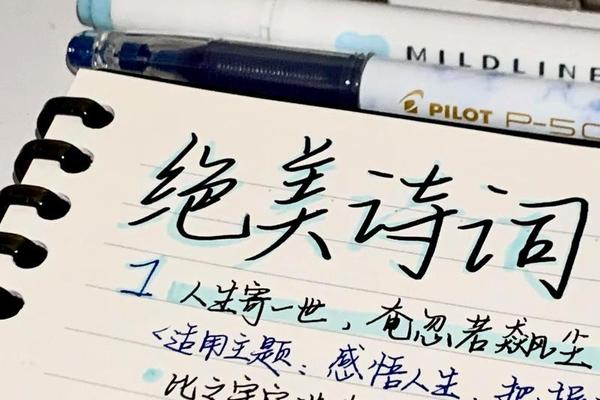 MILDLINE
PILOT P-50
绝美诗词
1 人生寄一世，奄忽若飙尘
<适用主题：感悟人生，把握